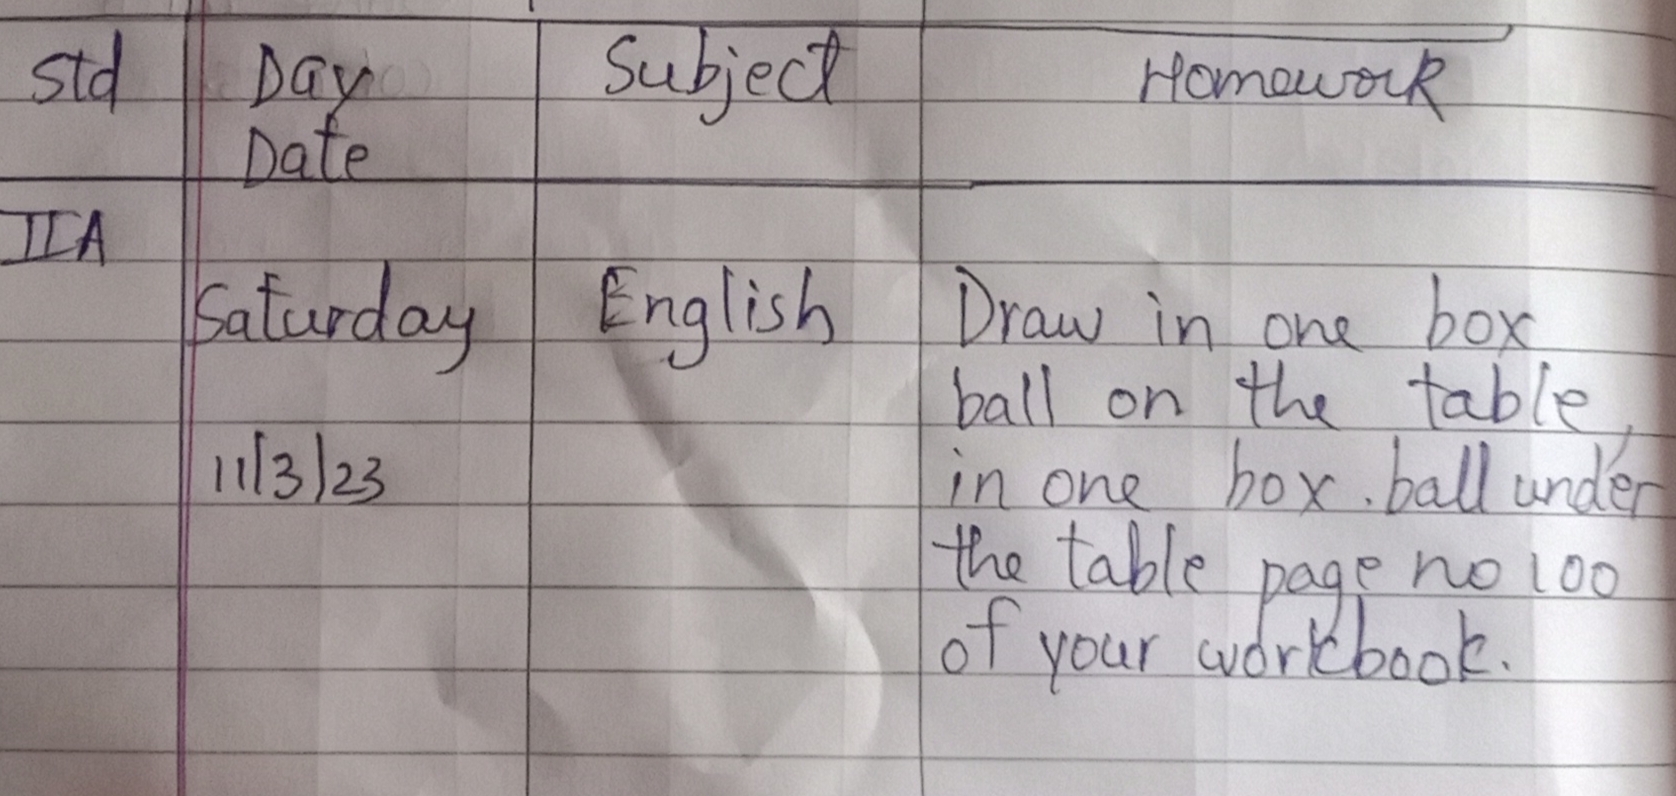 Std Day Subject Homework
Date
IIA
Saturday English Draw in one box
ball on the table,
11/3/23 in one box. ball under
the table page no 100
of your workbook.